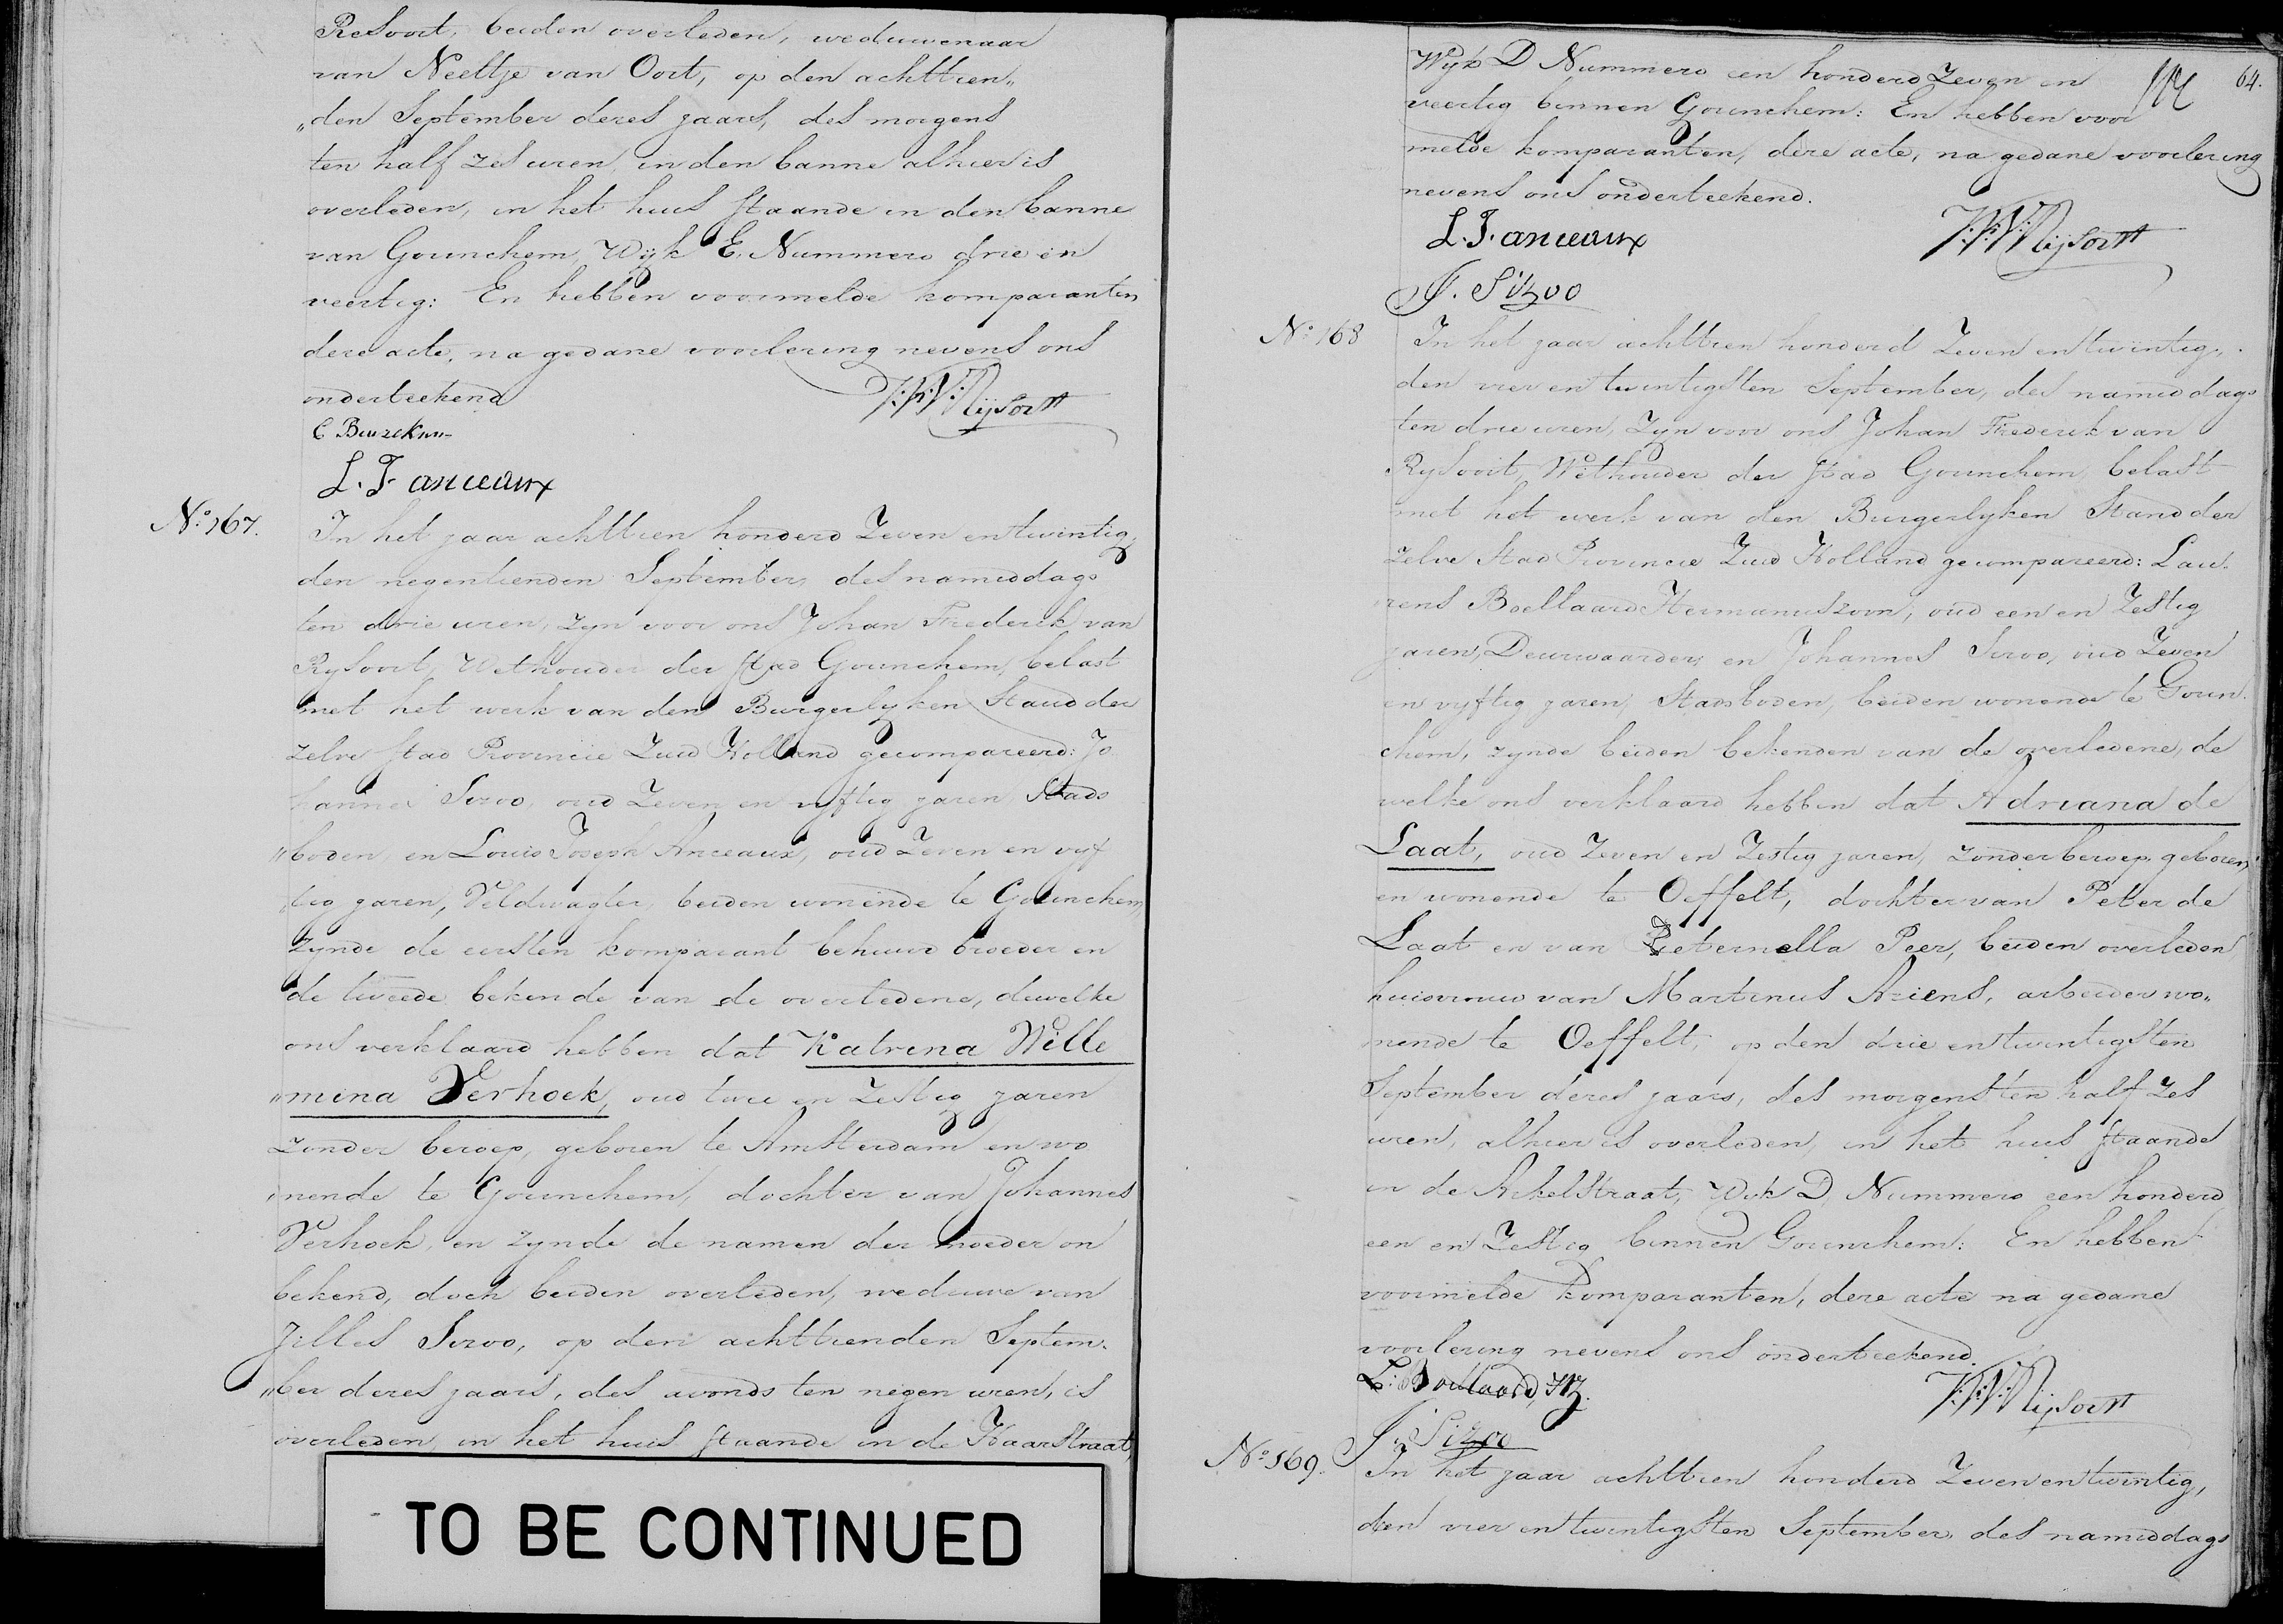 Resoort, beiden overleden, weduwenaar
van Neeltje van Oort, op den achttien„
„den September dezes jaars, des morgens
ten half zes uren, in den banne alhier is
overleden, in het huis staande in den banne
van Gorinchem, Wijk E, Nummero drie en
veertig: En hebben voormelde komparanten
deze acte, na gedane voorlezing nevens ons
onderteekend
J:F:V:Rijsoort
L. J. anceaux
No. 167.
In het jaar achttien honderd Zeven en twintig,
den negentienden September, des namiddags
ten drie uren, zyn voor ons Johan Frederik van
Rysoort, Wethouder der stad Gorinchem, belast
met het werk van den Burgerlyken Stand der
zelve stad Provincie Zuid Holland gecompareerd: Jo
hannes Sizoo, oud Zeven en vyftig jaren, Stads
„boden, en Louis Joseph Anceaux, oud Zeven en vyf
„tig jaren, Veldwagter, beiden wonende te Gorinchem,
zynde de eersten komparant behuwd broeder en
de tweede bekende van de overledene, dewelke
ons verklaard hebben dat Katrina Wille
„mina Verhoek, oud twee en Zestig jaren
zonder beroep, geboren te Amsterdam en wo
„nende te Gorinchem, dochter van Johannes
Verhoek, en zynde de namen der moeder on
bekend, doch beiden overleden, weduwe van
Jilles Sizoo, op den achttienden Septem„
„ber dezes jaars, des avonds ten negen uren, is
overleden in het huis staande in de Haarstraat,
TO BE CONTINUED
64.
Wyk D Nummero een honderd Zeven en
veertig binnen Gorinchem: En hebben voor
melde komparanten, deze acte, na gedane voorlezing
nevens ons onderteekend.
L. J. anceaux J:F:V:Rijsoort
J. Sizoo
No. 168
In het jaar achttien honderd Zeven en twintig,
den vier en twintigsten September, des namiddags
ten drie uren, Zyn voor ons Johan Frederik van
Rysoort, Wethouder der stad Gorinchem, belast
met het werk van den Burgerlyken Stand der
zelve Stad Provincie Zuid Holland gecompareerd: Lau„
rens Boellaard Hermanuszoon, oud een en Zestig
jaren, Deurwaarder, en Johannes Sizoo, oud Zeven
en vyftig jaren, Stadsboden, beiden wonende te Gorin„
chem, zynde beiden bekenden van de overledene, de
welke ons verklaard hebben dat Adriana de
Laat, oud Zeven en Zestig jaren, zonder beroep, geboren
en wonende te Oeffelt, dochter van Peter de
Laat en van Peternella Peer, beiden overleden,
huisvrouw van Martinus Ariens, arbeider wo„
nende te Oeffelt, op den drie en twintigsten
September dezes jaars, des morgens ten half zes
uren, alhier is overleden, in het huis staande
in de Arkelstraat, Wyk D, Nummero een honderd
een en Zestig binnen Gorinchem: En hebben
voormelde komparanten, deze acte na gedane
voorlezing nevens ons onderteekend.
L: Boellaard, HZ. J:F:V:Rijsoort
J. Sizoo
No. 169.
In het jaar achttien honderd Zeven en twintig,
den vier en twintigsten September, des namiddags